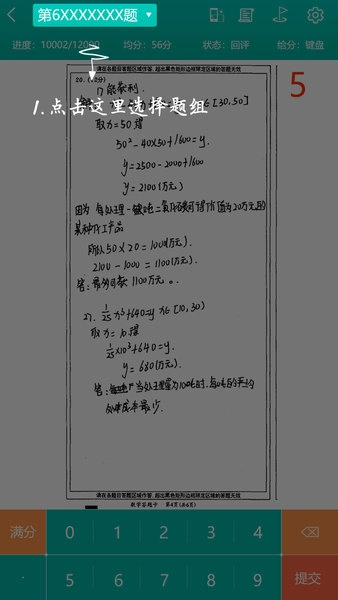 第6XXXXXXX题
进度：10002/12000 均分：56分 状态：回评 给分：键盘
请在各题目答题区域作答，超出黑色矩形边框限定区域的答题无效
20.（12分）
5
1.点击这里选择题组
1) 能获利.
[30,50]
取x=50得
50²-40×50+1600=y.
y=2500-2000+1600
y=2100(万元)
因为
二氧化碳可得价值为20万元的
某种化工产品
所以50×20=1000(万元).
2100-1000=1100(万元).
答：
1100万元。
2).
x³+640=y x∈[10,30)
取x=10得
×10³+640=y.
y=680(万元).
答：
当处理量为100吨时,每吨的平均
处理成本最少.
请在各题目答题区域作答，超出黑色矩形边框限定区域的答题无效
数学答题卡 第4页(共6页)
满分 0 1 2 3 4
· 5 6 7 8 9 提交